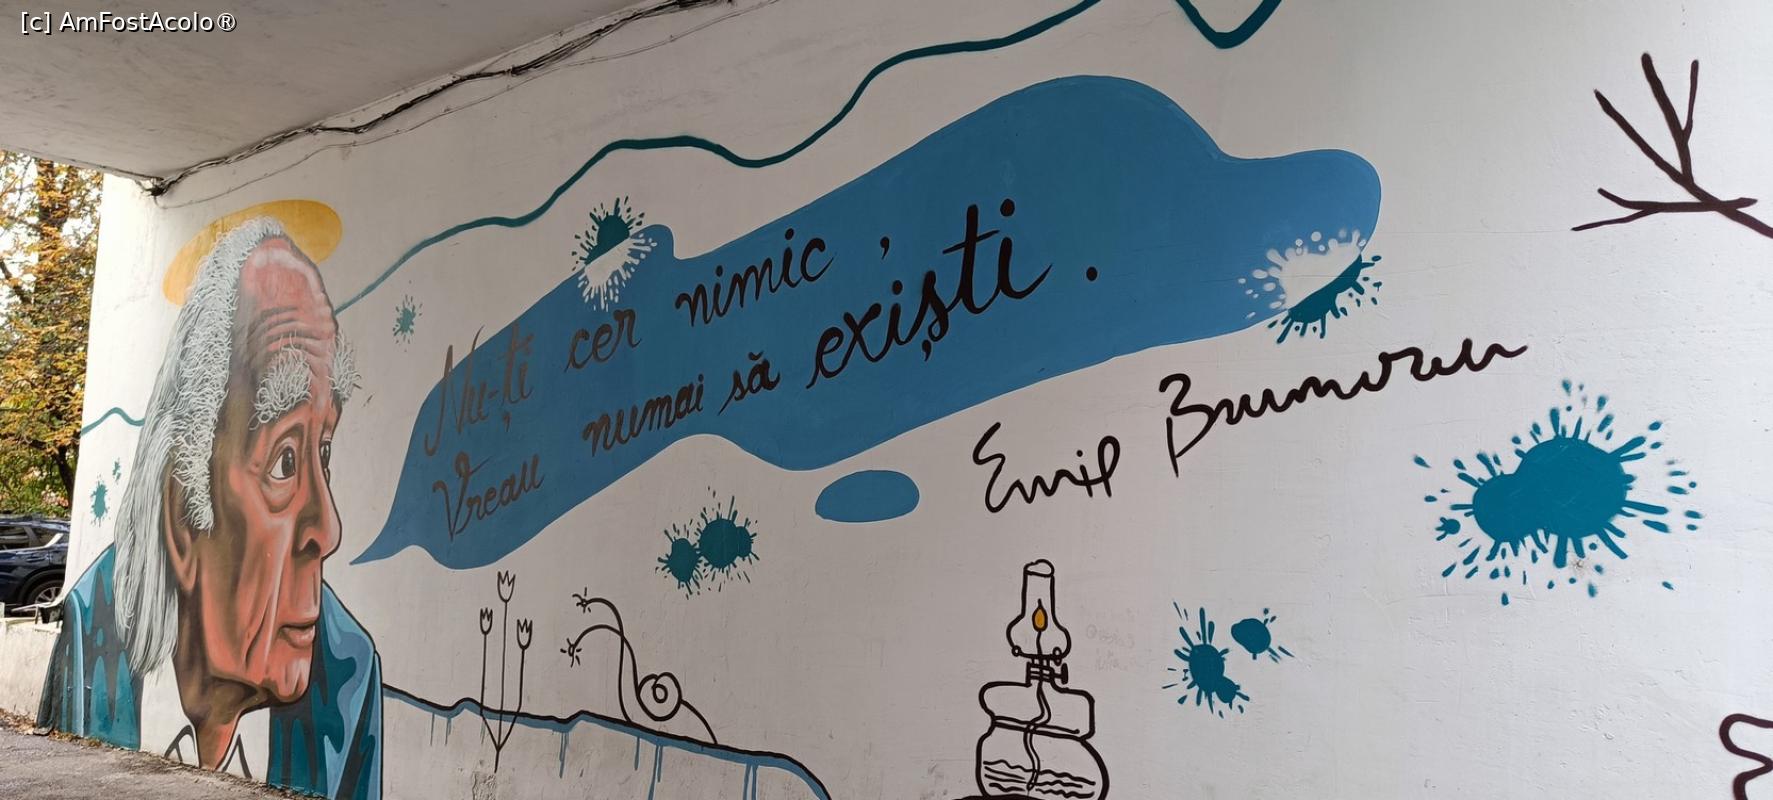 [c] AmFostAcolo®
Nu-ți cer nimic,
Vreau numai să exiști.
Emil Brumaru